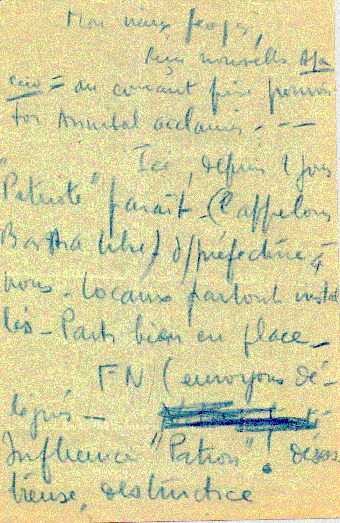 Mon vieux
Reçu nouvelles Aja
ccio = au courant
Toi Annibal acclamé. —
Ici, depuis 1 jour
"Patriote" paraît. (l'appelons
Bastia libre) S/préfecture à
nous. Locaux partout instal
lés – Parti bien en place –
FN (envoyons dé-
légués –
Influence "Patron"! désas
treuse, destructrice